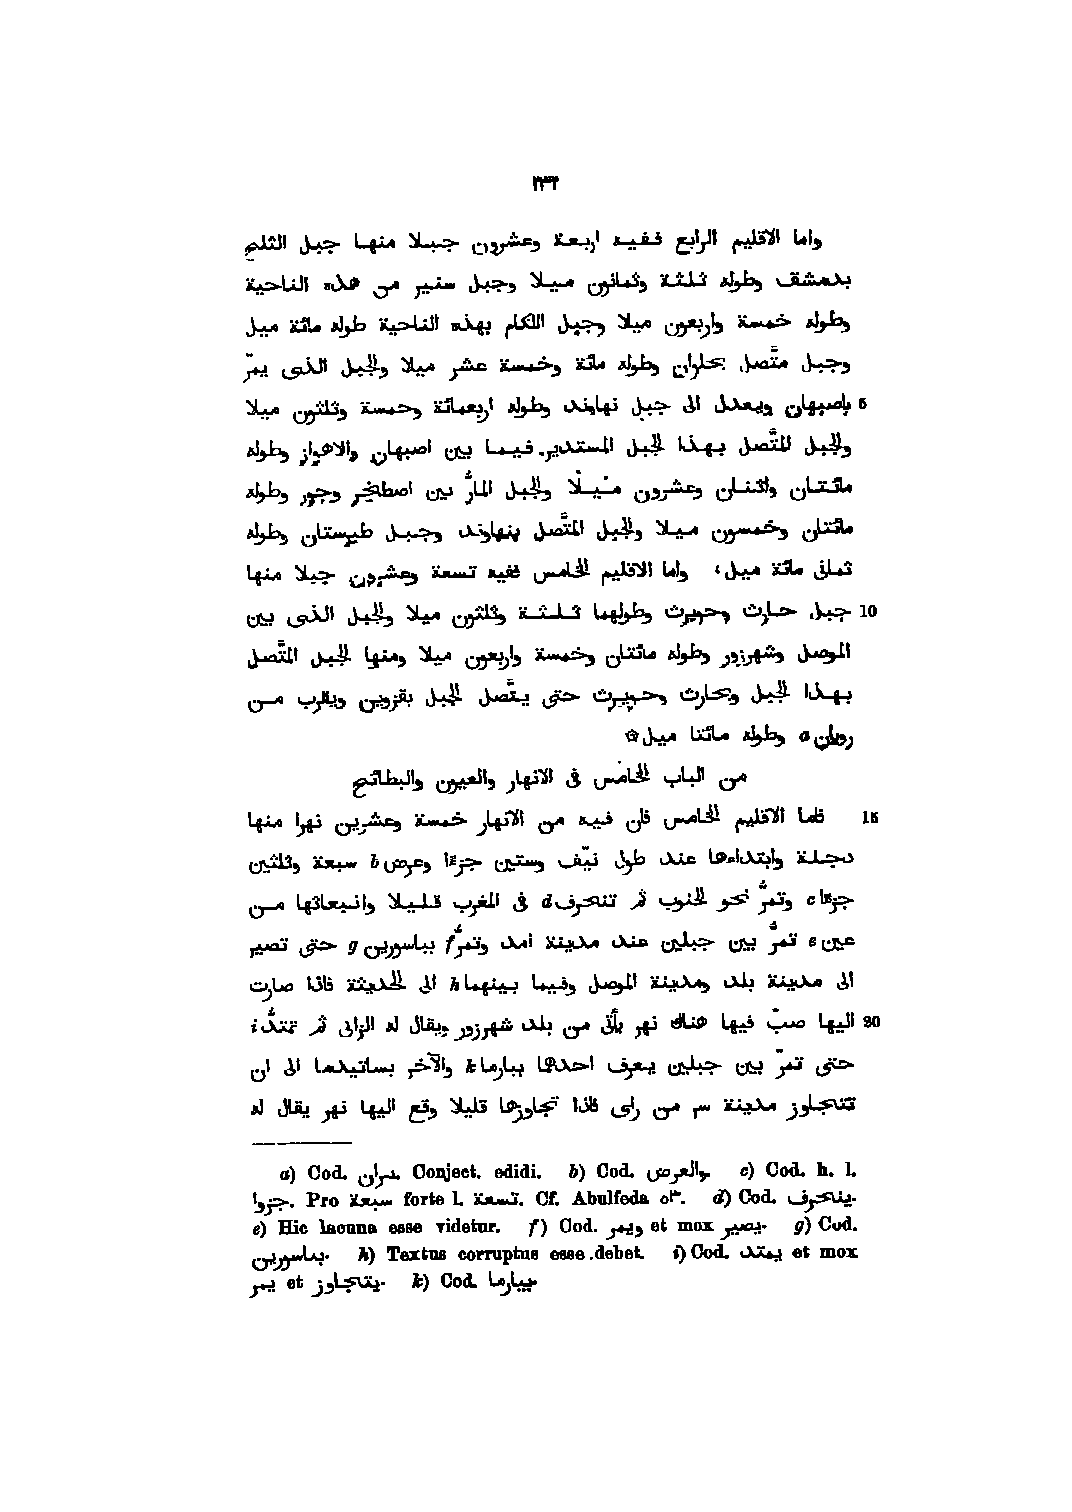 ٢٣٢
واما الاقليم الرابع ففيه اربعة وعشرون جبلا منها جبل الثلج
بدمشق وطوله ثلثة وثمانون ميلا وجبل سنير من هذه الناحية
وطوله خمسة واربعون ميلا وجبل اللكام بهذه الناحية طوله مائة ميل
وجبل متّصل بحلوان وطوله مائة وخمسة عشر ميلا والجبل الذى يمرّ
5 باصبهان ويعدل الى جبل نهاوند وطوله اربعمائة وخمسة وثلثون ميلا
والجبل المتّصل بهذا الجبل المستدير فيما بين اصبهان والاهواز وطوله
مائتان واثنان وعشرون ميلًا والجبل المارُّ بين اصطخر وجور وطوله
مائتان وخمسون ميلا والجبل المتّصل بنهاوند وجبل طبرستان وطوله
ثمانى مائة ميل، واما الاقليم الخامس ففيه تسعة وعشرون جبلا منها
10 جبل حارث وحويرث وطولهما ثلثة وثلثون ميلا والجبل الذى بين
الموصل وشهرزور وطوله مائتان وخمسة واربعون ميلا ومنها الجبل المتّصل
بهذا الجبل وبحارث وحويرث حتى يتّصل الجبل بقزوين ويقرب من
رويان a وطوله مائتا ميل ۞
من الباب الخامس فى الانهار والعيون والبطائح
15 فاما الاقليم الخامس فان فيه من الانهار خمسة وعشرين نهرا منها
دجلة وابتداءها عند طول نيّف وستين جزءًا وعرض b سبعة وثلثين
جزءًا c وتمرُّ نحو الجنوب ثم تنحرف d فى المغرب قليلا وانبعاثها من
عين e تمرُّ بين جبلين عند مدينة آمد وتمرُّ f بباسورين g حتى تصير
الى مدينة بلد ومدينة الموصل وفيما بينهما h الى الحديثة فاذا صارت
20 اليها صبّ فيها هناك نهر يأتى من بلد شهرزور ويقال له الزابى ثم تمتدُّ i
حتى تمرّ بين جبلين يعرف احدها ببارما k والآخر بساتيدما الى ان
تتجاوز مدينة سر من راى فاذا تجاوزها قليلا وقع اليها نهر يقال له
a) Cod. Conject. edidi. b) Cod. والعرض. c) Cod. h. l.
جزوا. Pro سبعة forte l. تسعة. Cf. Abulfeda ٥٣. d) Cod. ينحرف.
e) Hic lacuna esse videtur. f) Cod. ويمر et mox يصير. g) Cod.
بباسورين. h) Textus corruptus esse debet. i) Cod. يمتد et mox
يمر et يتجاوز. k) Cod. بيبارما